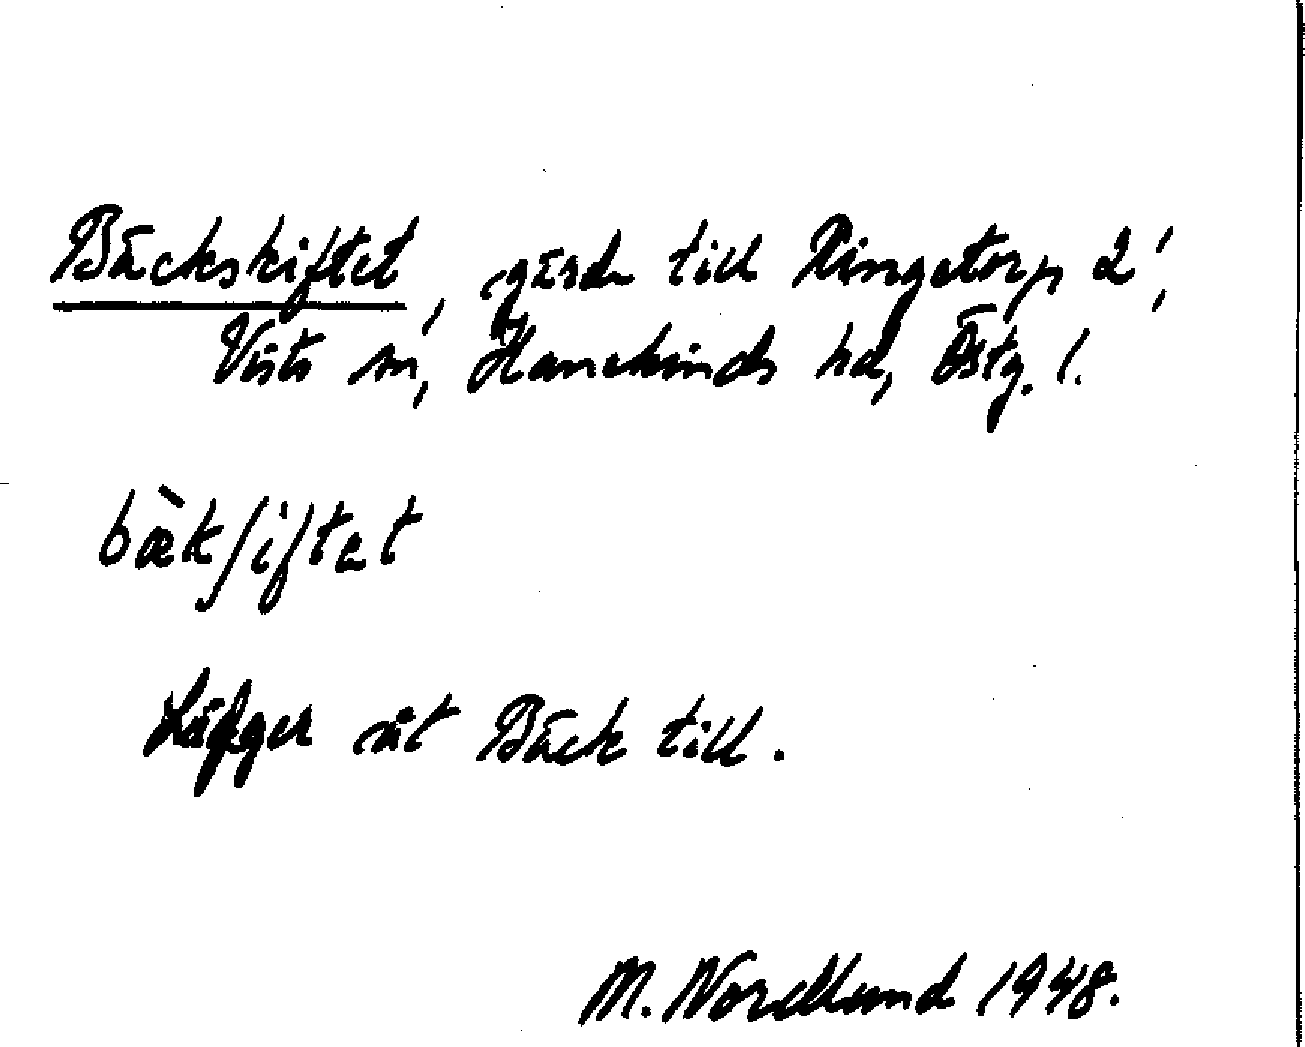 Bäckskiftet, gärde till Ringetorp 2¹,
Vists sn, Hanekinds hd, Östg. l.
bæ̀kʃiftet
Ligger åt Bäck till.
M. Nordlund 1948.